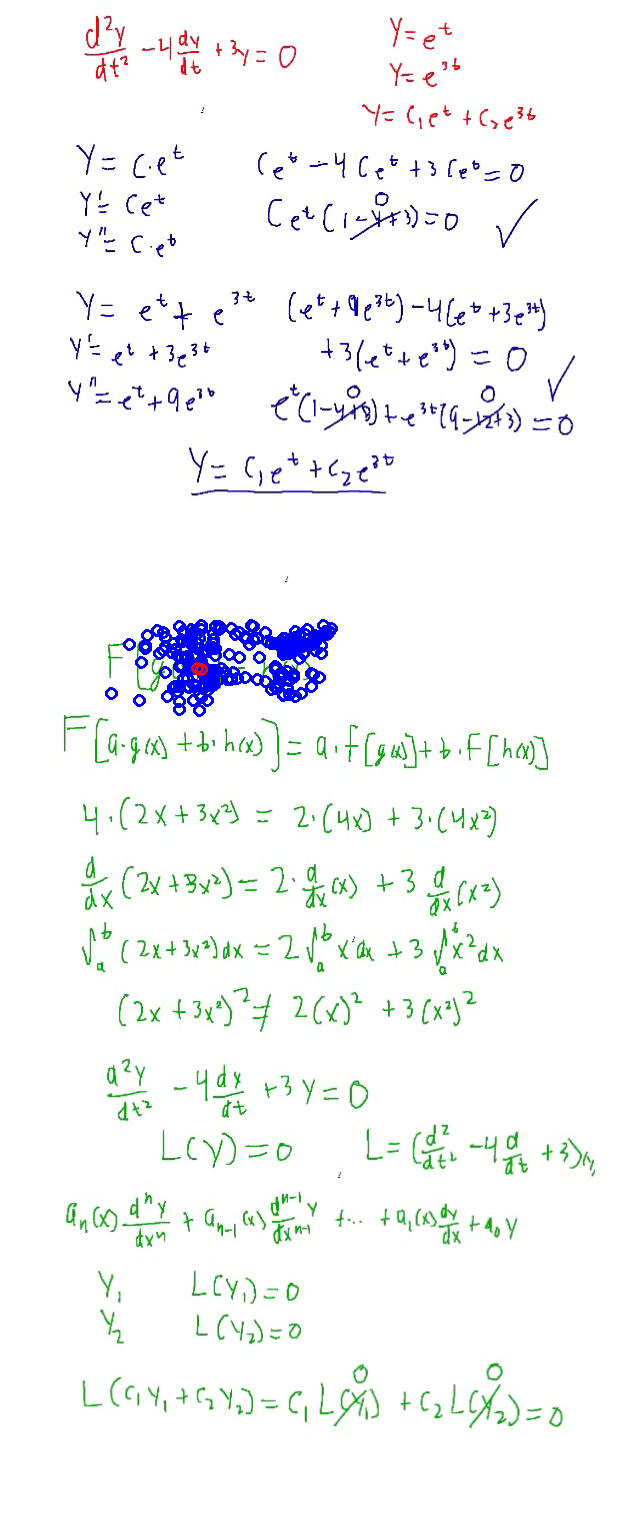 d²y/dt² - 4 dy/dt + 3y = 0
y = e^t
y = e^3t
y = C₁e^t + C₂e^3t
y = C·e^t
y' = Ce^t
y'' = C·e^t
Ce^t - 4Ce^t + 3Ce^t = 0
Ce^t(1-4+3) = 0 ✓
0
y = e^t + e^3t
y' = e^t + 3e^3t
y'' = e^t + 9e^3t
(e^t + 9e^3t) - 4(e^t + 3e^3t)
+3(e^t + e^3t) = 0 ✓
0 0
e^t(1-4+3) + e^3t(9-12+3) = 0
y = C₁e^t + C₂e^3t
F[g
F[a·g(x) + b·h(x)] = a·F[g(x)] + b·F[h(x)]
4·(2x + 3x²) = 2·(4x) + 3·(4x²)
d/dx (2x + 3x²) = 2·d/dx (x) + 3 d/dx (x²)
∫_a^b (2x + 3x²)dx = 2∫_a^b x dx + 3∫_a^b x² dx
(2x + 3x²)² ≠ 2(x)² + 3(x²)²
d²y/dt² - 4 dy/dt + 3y = 0
L(y) = 0 L = (d²/dt² - 4 d/dt + 3)
a_n(x) d^n y/dx^n + a_n-1(x) d^n-1 y/dx^n-1 + ... + a₁(x) dy/dx + a₀y
y₁ L(y₁) = 0
y₂ L(y₂) = 0
0 0
L(C₁y₁ + C₂y₂) = C₁L(y₁) + C₂L(y₂) = 0